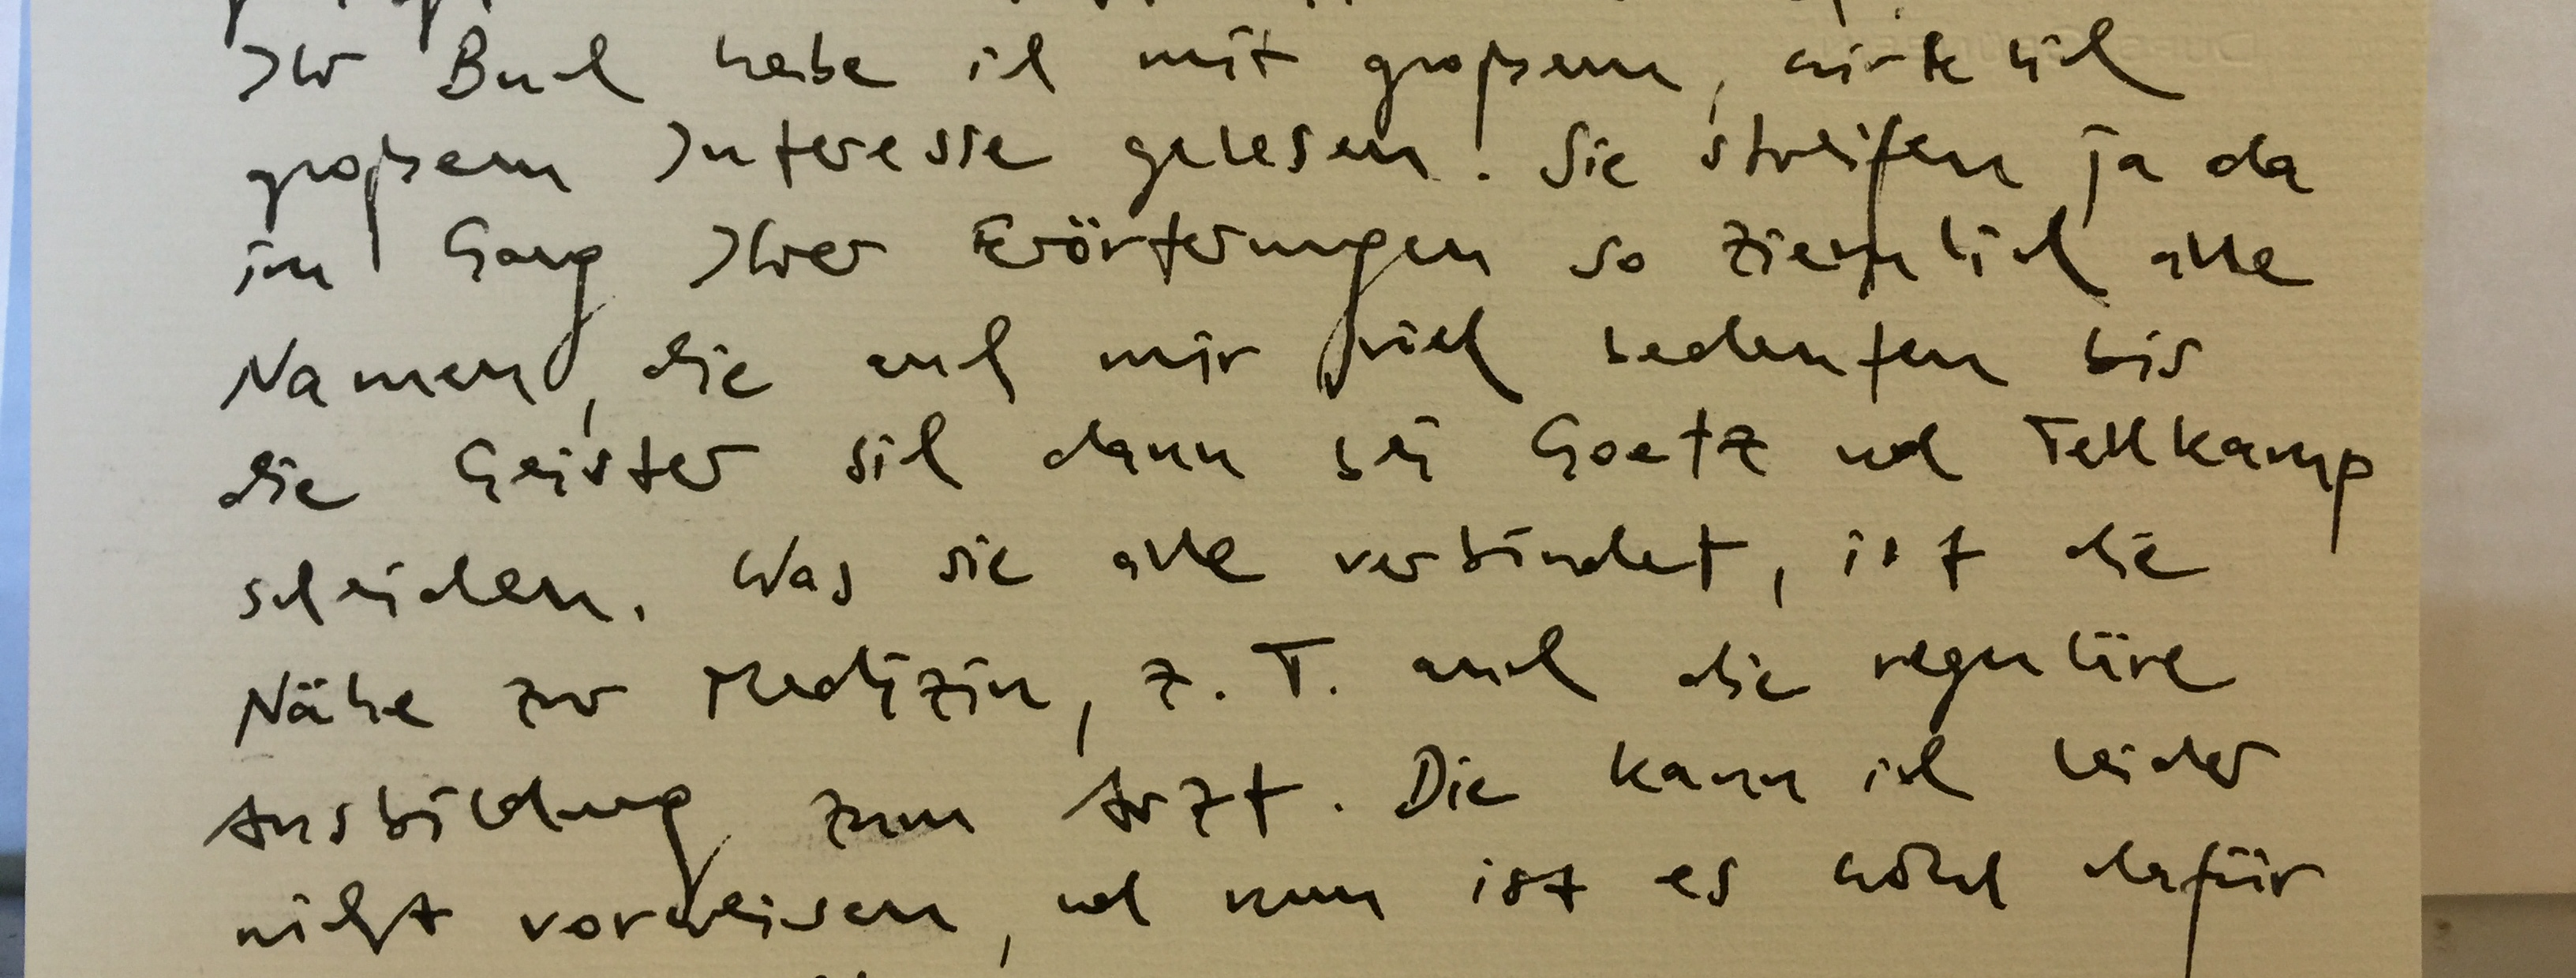 Ihr Buch habe ich mit großem, wirklich
großem Interesse gelesen. Sie streifen ja da
im Gang Ihrer Erörterungen so ziemlich alle
Namen, die auch mir viel bedeuten bis
die Geister sich dann bei Goetz und Tellkamp
scheiden. Was sie alle verbindet, ist die
Nähe zur Medizin, z. T. auch die reguläre
Ausbildung zum Arzt. Die kann ich leider
nicht vorweisen, und nun ist es wohl dafür